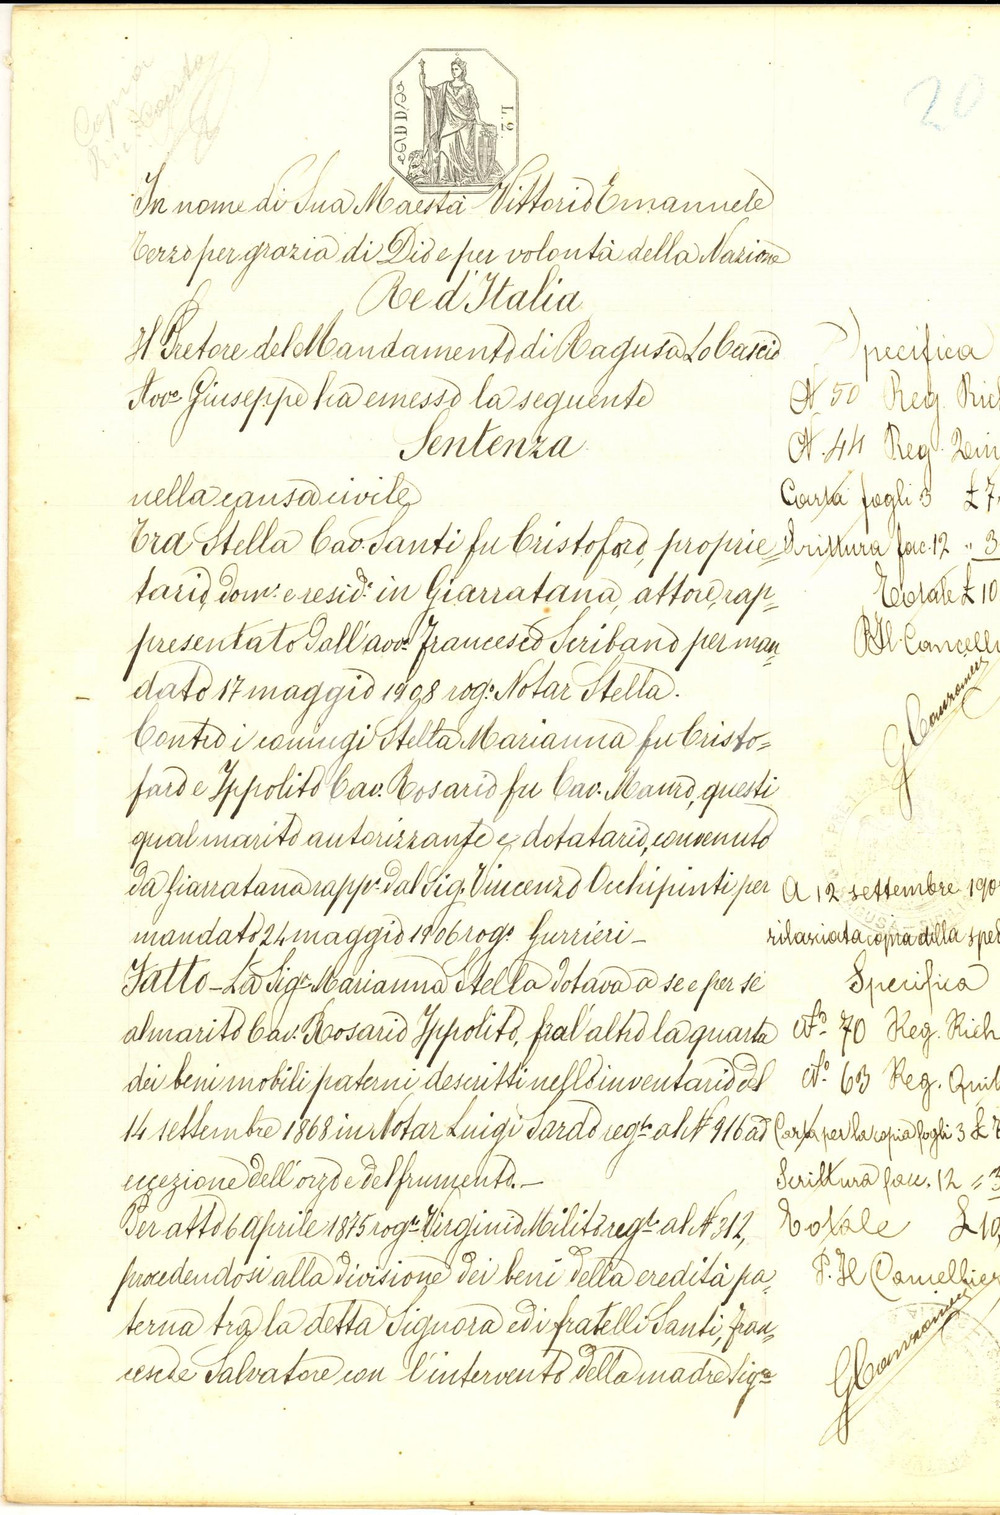 Copia
20
L. 2.
In nome di Sua Maestà Vittorio Emanuele
Terzo per grazia di Dio e per volontà della Nazione
Re d'Italia
Il Pretore del Mandamento di Ragusa Lo Cascio
Avv.o Giuseppe ha emesso la seguente
Sentenza
nella causa civile
Tra Stella Cav. Santi fu Cristoforo, proprie=
tario, dom.o e resid.e in Giarratana, attore, rap=
presentato dall'avv.o Francesco Scribano per man=
dato 17 maggio 1908 rog.o Notar Stella.
Contro i coniugi Stella Marianna fu Cristo=
faro e Ippolito Cav. Rosario fu Cav. Mauro, questi
qual marito autorizzante e dotatario, convenuto
da Giarratana rapp.o dal Sig. Vincenzo Occhipinti per
mandato 24 maggio 1906 rog.o Gurrieri_
Fatto_La Sig.a Marianna Stella dotava a se e per se
al marito Cav. Rosario Ippolito, fra l'altro la quarta
dei beni mobili paterni descritti nello inventario del
14 settembre 1868 in Notar Luigi Sardo reg.to al N.° 916 ad
eccezione dell'orzo e del frumento._
Per atto 6 aprile 1875 rog.o Virginio Milito reg.to al N° 312,
procedendosi alla divisione dei beni della eredità pa=
terna tra la detta Signora ed i fratelli Santi, Fran=
cesco e Salvatore con l'intervento della madre Sig.a
Specifica
N. 50 Reg. Rich
N. 44 Reg.
Carta fogli 3 £ 7.
Scrittura fac. 12 " 3
Totale £ 10
Il Cancelli
A 12 settembre 190
rilasciata copia della spe
Specifica
N.o 70 Reg. Rich
N.o 63 Reg. Quit
Carta per la copia fogli 3 £ 7
Scrittura fac. 12 " 3
Totale £ 10,
P. Il Cancellier